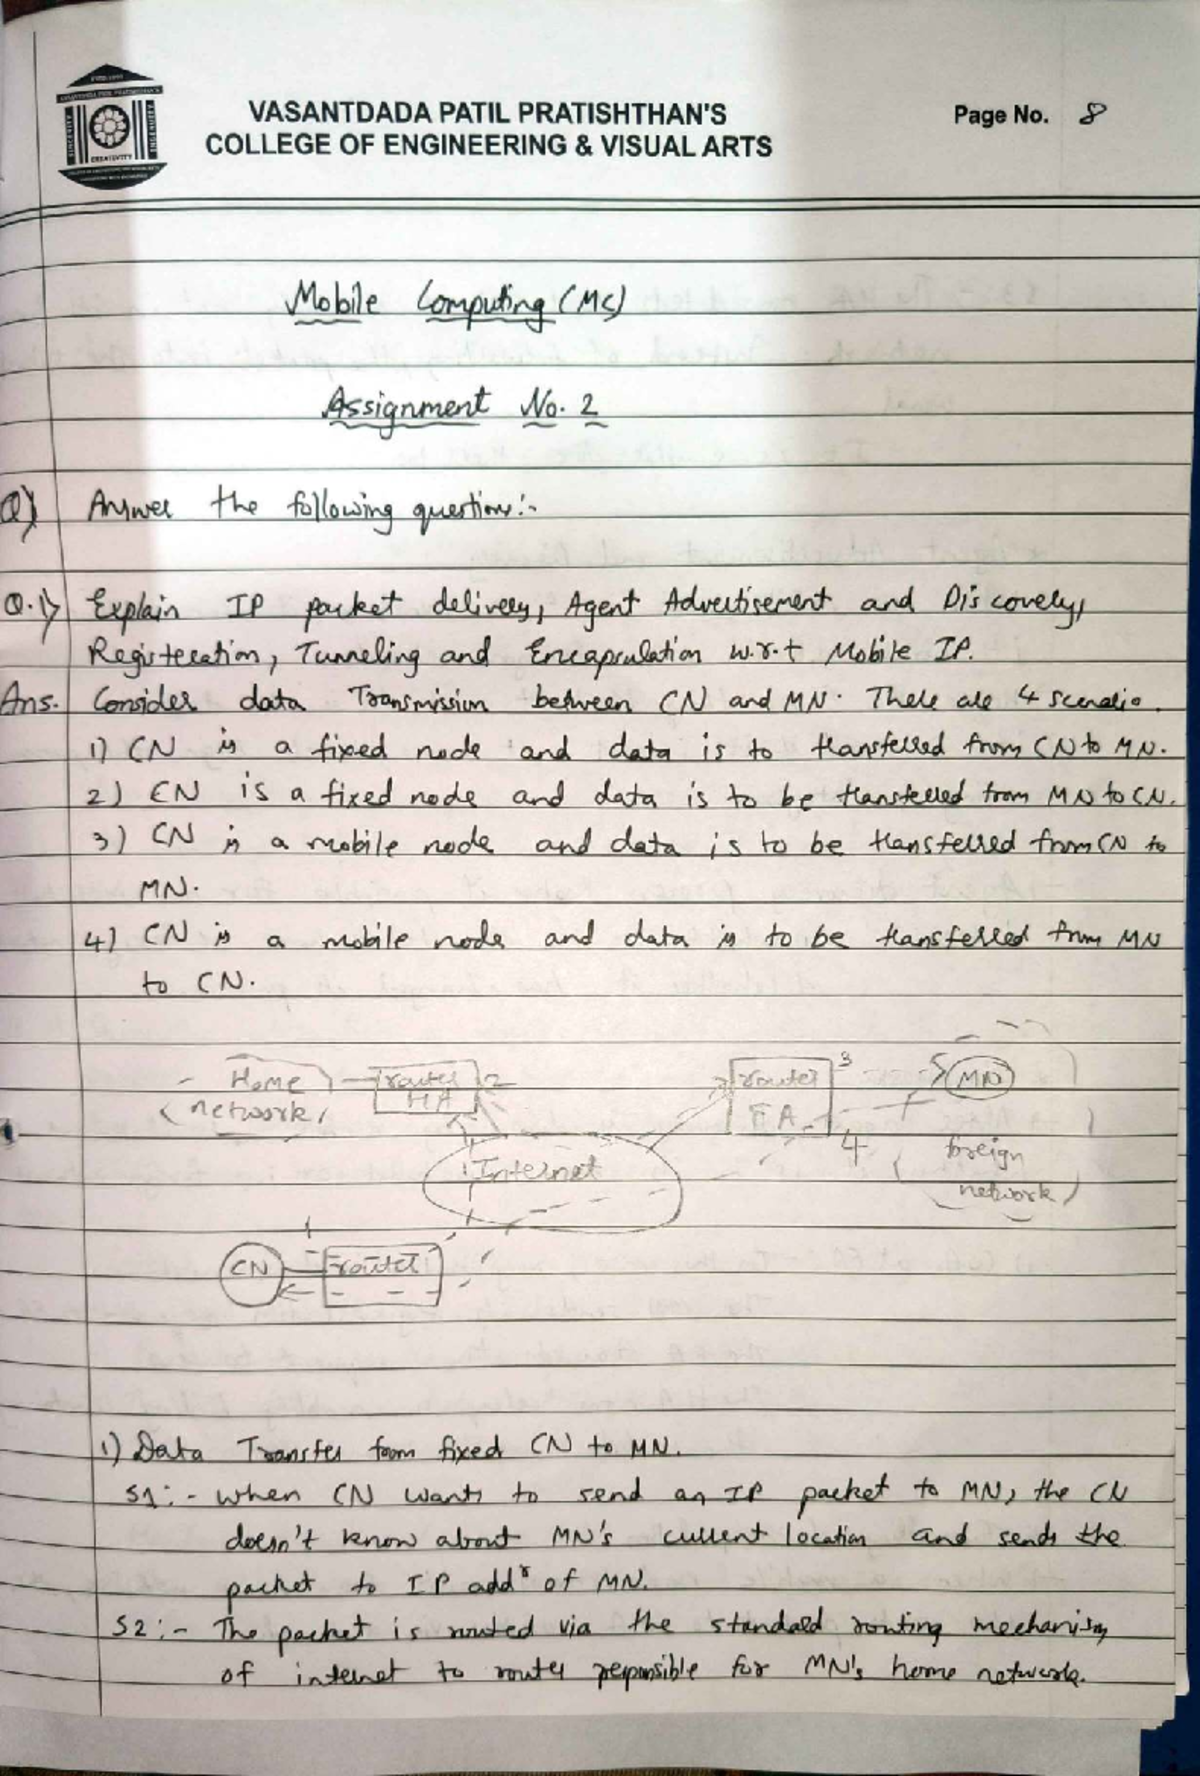 VASANTDADA PATIL PRATISHTHAN'S
COLLEGE OF ENGINEERING & VISUAL ARTS
Page No. 8
CREATIVITY
Mobile Computing (MC)
Assignment No. 2
Q) Answer the following question:-
Q.1) Explain IP packet delivery, Agent Advertisement and Discovery,
Registeration, Tunneling and Encapsulation w.r.t Mobile IP.
Ans. Consider data Transmission between CN and MN. There are 4 scenario.
1) CN is a fixed node and data is to transferred from CN to MN.
2) CN is a fixed node and data is to be transferred from MN to CN.
3) CN is a mobile node and data is to be transferred from CN to
MN.
4) CN is a mobile node and data is to be transferred from MN
to CN.
Home network
router HA
2
router FA
3
4
5
MN
foreign network
1
Internet
CN
router
1) Data Transfer from fixed CN to MN.
S1:- when CN wants to send an IP packet to MN, the CN
doesn't know about MN's current location and sends the
packet to IP addr of MN.
S2:- The packet is routed via the standard routing mechanism
of internet to router responsible for MN's home network.